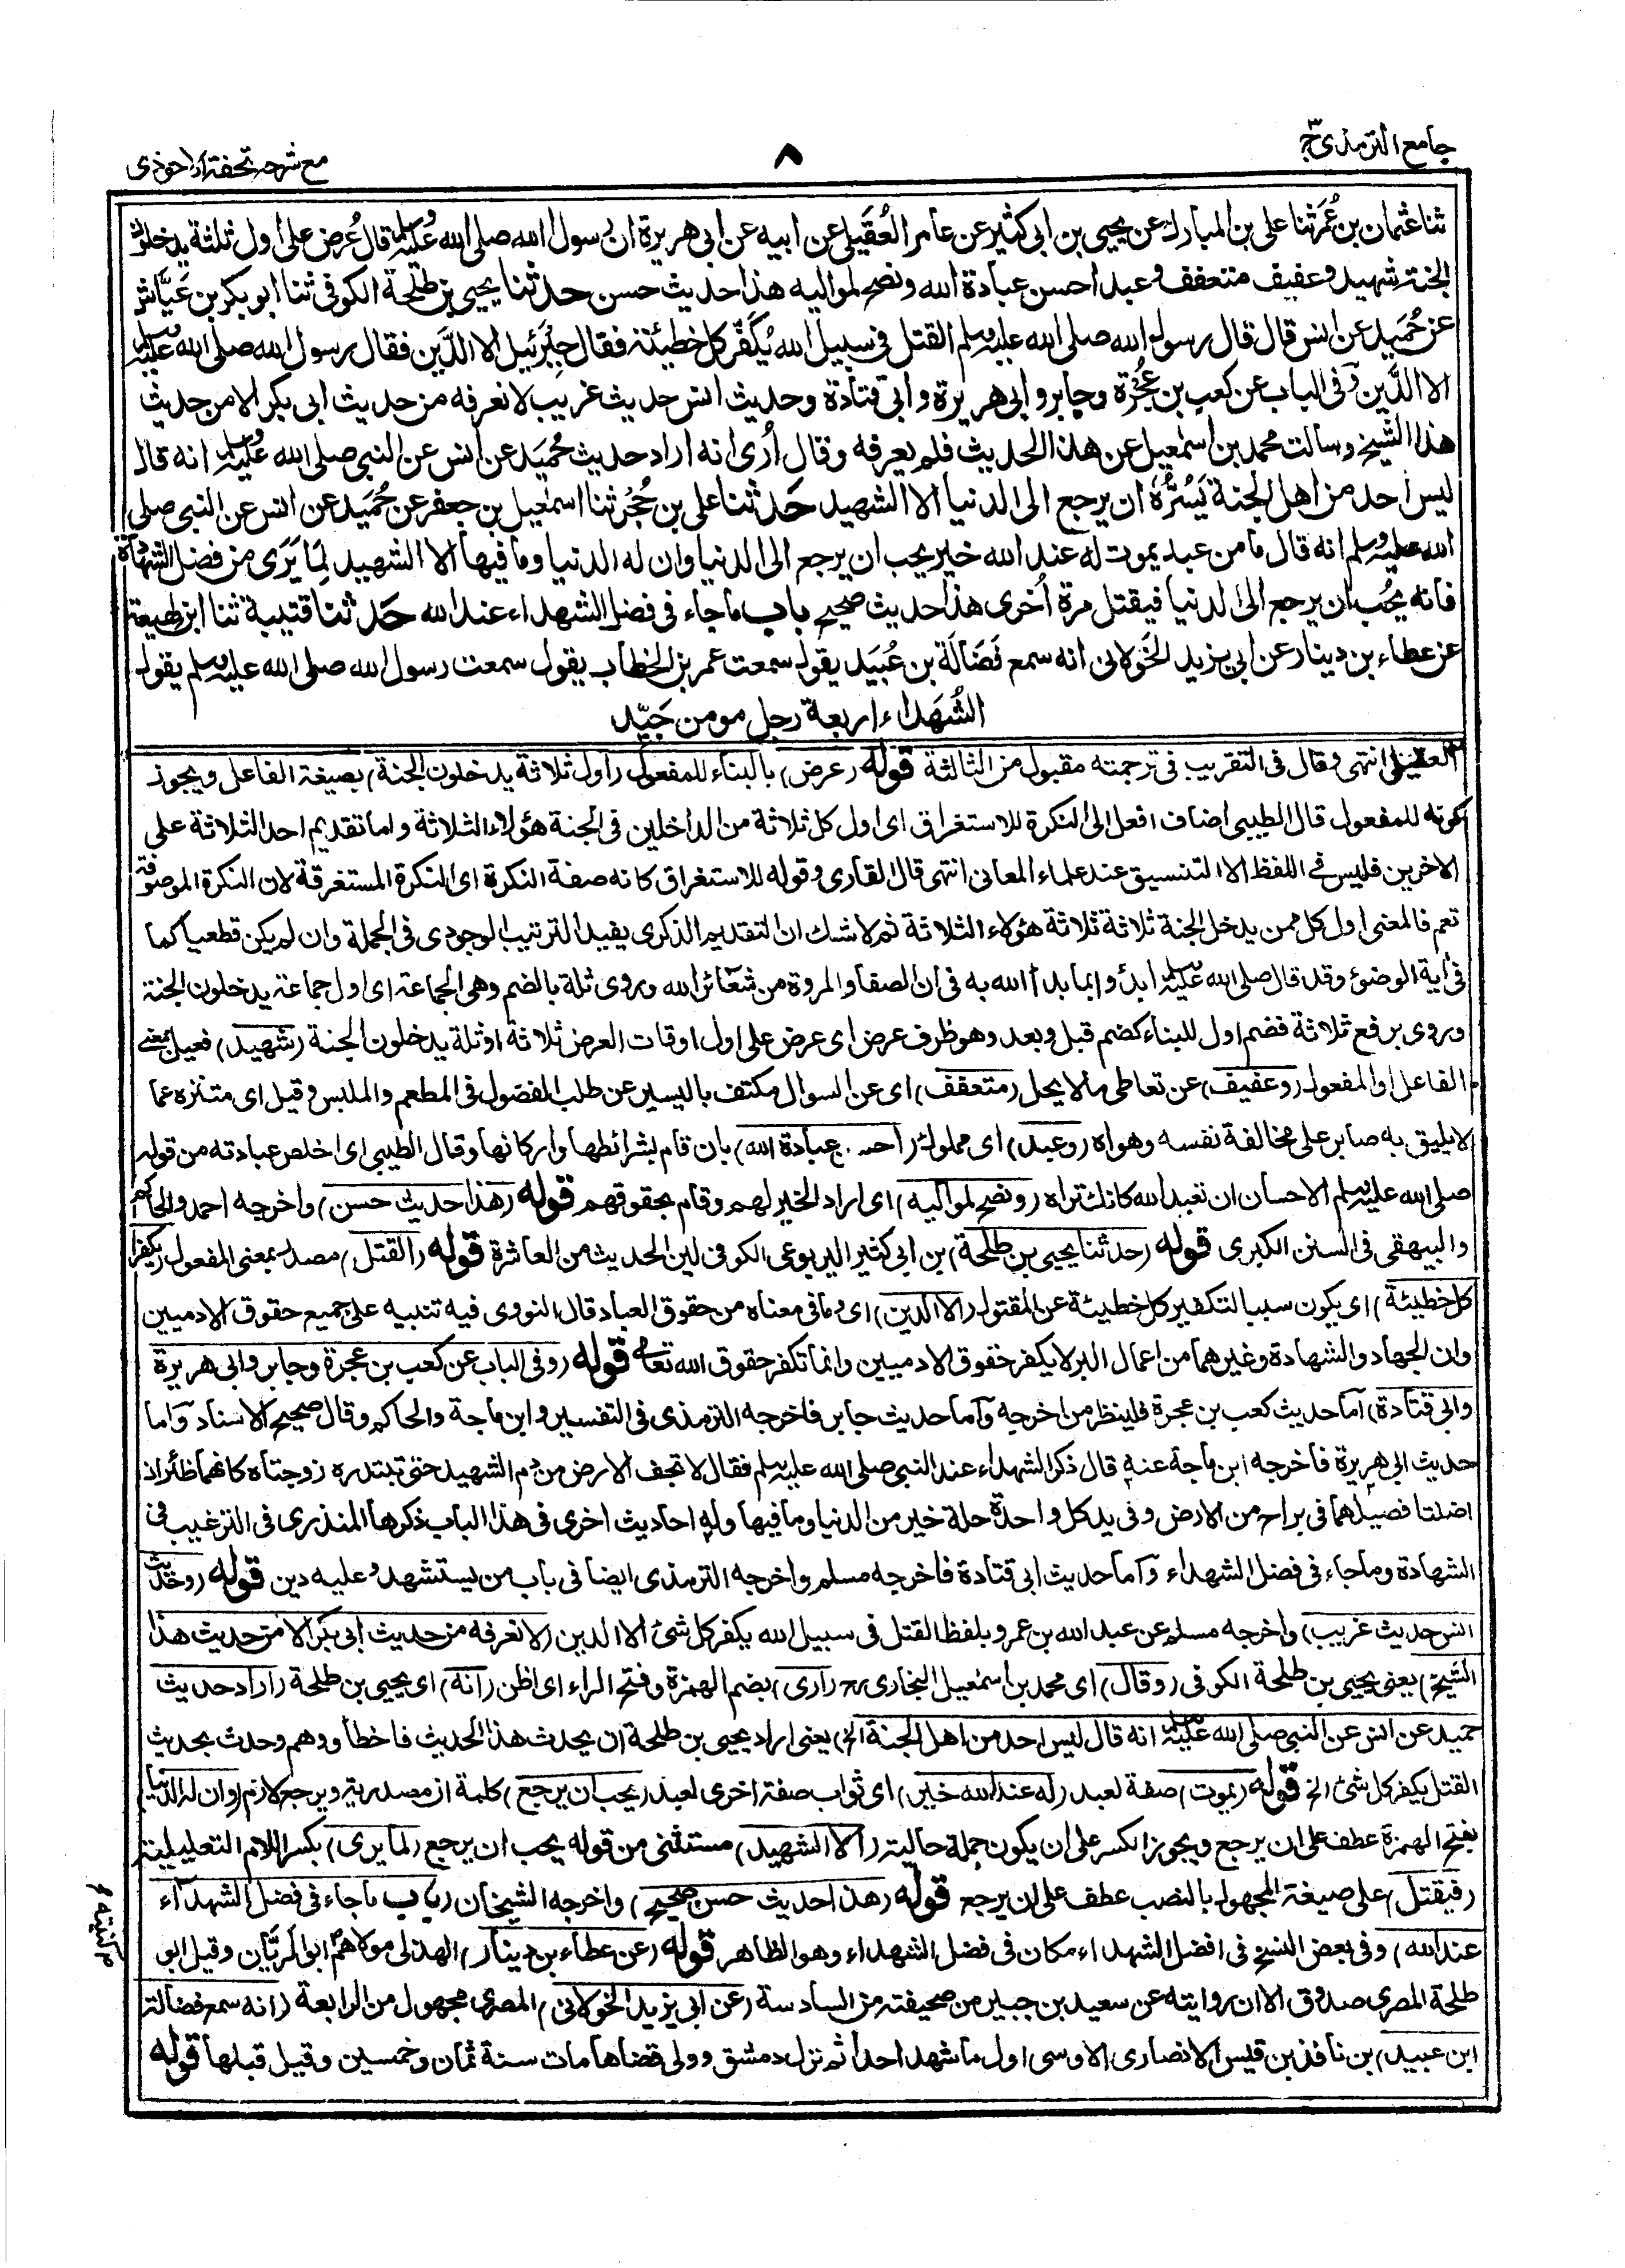 جامع الترمذى ج٣
٨
مع شرحه تحفة الاحوذى
ثنا عثمان بن عُمَر ثنا على بن المبارك عن يحيى بن ابى كثير عن عامر العُقَيلى عن ابيه عن ابى هريرة ان رسول الله صلى الله عليه وسلم قال عُرض على اول ثلثة يدخلون
الجنة شهيد وعفيف متعفف وعبد احسن عبادة الله ونصح لمواليه هذا حديث حسن حدثنا يحيى بن طلحة الكوفى ثنا ابو بكر بن عَيَّاش
عن حُمَيد عن انس قال قال رسول الله صلى الله عليه وسلم القتل فى سبيل الله يُكَفِّر كل خطيئة فقال جبرئيل الا الدَّين فقال رسول الله صلى الله عليه وسلم
الا الدَّين وفى الباب عن كعب بن عُجْرَة وجابر وابى هريرة وابى قتادة وحديث انس حديث غريب لا نعرفه من حديث ابى بكر الا من حديث
هذا الشيخ وسالت محمد بن اسمٰعيل عن هذا الحديث فلم يعرفه وقال اُرى انه اراد حديث حُمَيد عن انس عن النبى صلى الله عليه وسلم انه قال
ليس احد من اهل الجنة يَسُرُّهُ ان يرجع الى الدنيا الا الشهيد حَدثنا على بن حُجْر ثنا اسمٰعيل بن جعفر عن حُمَيد عن انس عن النبى صلى
الله عليه وسلم انه قال ما من عبد يموت له عند الله خير يحب ان يرجع الى الدنيا وان له الدنيا وما فيها الا الشهيد لِمَا يَرَى من فضل الشهادة
فانه يحُب ان يرجع الى الدنيا فيقتل مرة اُخرى هذا حديث صحيح باب ما جاء فى فضل الشهداء عند الله حَدثنا قتيبة ثنا ابن لهيعة
عن عطاء بن دينار عن ابى يزيد الخَولانى انه سمع فَضَالَة بن عُبَيد يقول سمعت عمر بن الخطاب يقول سمعت رسول الله صلى الله عليه وسلم يقول
الشُهَداء اربعة رجل مومن جَيّد
العقيلى انتهى وقال فى التقريب فى ترجمته مقبول من الثالثة قوله (عرض) بالبناء للمفعول (اول ثلاثة يدخلون الجنة) بصيغة الفاعل ويجوز
كونه للمفعول قال الطيبى اضاف افعل الى النكرة للاستغراق اى اول كل ثلاثة من الداخلين فى الجنة هؤلاء الثلاثة واما تقديم احد الثلاثة على
الاخرين فليس فى اللفظ الا التنسيق عند علماء المعانى انتهى قال القارى وقوله للاستغراق كانه صفة النكرة اى النكرة المستغرقة لان النكرة الموصوفة
تعم فالمعنى اول كل ممن يدخل الجنة ثلاثة ثلاثة هؤلاء الثلاثة ثم لا شك ان التقديم الذكرى يفيد الترتيب الوجودى فى الجملة وان لم يكن قطعيا كما
فى اية الوضوء وقد قال صلى الله عليه وسلم ابدؤا بما بدأ الله به فى ان الصفا والمروة من شعائر الله وروى ثلة بالضم وهى الجماعة اى اول جماعة يدخلون الجنة
وروى برفع ثلاثة فضم اول للبناء كضم قبل وبعد وهو ظرف عرض اى عرض على اول اوقات العرض ثلاثة او ثلة يدخلون الجنة (شهيد) فعيل بمعنى
الفاعل او المفعول (وعفيف) عن تعاطى ما لا يحل (متعفف) اى عن السوال مكتف باليسير عن طلب الفضول فى المطعم والملبس وقيل اى متنزه عما
لا يليق به صابر على مخالفة نفسه وهواه (وعبد) اى مملوك (احسن عبادة الله) بان قام بشرائطها واركانها وقال الطيبى اى اخلص عبادته من قوله
صلى الله عليه وسلم الاحسان ان تعبد الله كانك تراه (ونصح لمواليه) اى اراد الخير لهم وقام بحقوقهم قوله (هذا حديث حسن) واخرجه احمد والحاكم
والبيهقى فى السنن الكبرى قوله (حدثنا يحيى بن طلحة) بن ابى كثير اليربوعى الكوفى لين الحديث من العاشرة قوله (القتل) مصدر بمعنى المفعول (يكفر
كل خطيئة) اى يكون سببا لتكفير كل خطيئة عن المقتول (الا الدين) اى وما فى معناه من حقوق العباد قال النووى فيه تنبيه على جميع حقوق الادميين
وان الجهاد والشهادة وغيرهما من اعمال البر لا يكفر حقوق الادميين وانما تكفر حقوق الله تعالى قوله (وفى الباب عن كعب بن عجرة وجابر وابى هريرة
وابى قتادة) اما حديث كعب بن عجرة فلينظر من اخرجه واما حديث جابر فاخرجه الترمذى فى التفسير وابن ماجة والحاكم وقال صحيح الاسناد واما
حديث ابى هريرة فاخرجه ابن ماجة عنه قال ذكر الشهداء عند النبى صلى الله عليه وسلم فقال لا تجف الارض من دم الشهيد حتى تبتدره زوجتاه كانهما ظئران
اضلتا فصيلهما فى براح من الارض وفى يد كل واحدة حلة خير من الدنيا وما فيها وله احاديث اخرى فى هذا الباب ذكرها المنذرى فى الترغيب فى
الشهادة وما جاء فى فضل الشهداء واما حديث ابى قتادة فاخرجه مسلم واخرجه الترمذى ايضا فى باب من يستشهد وعليه دين قوله (وحديث
انس حديث غريب) واخرجه مسلم عن عبد الله بن عمرو بلفظ القتل فى سبيل الله يكفر كل شئ الا الدين (لا نعرفه من حديث ابى بكر الا من حديث هذا
الشيخ) يعنى يحيى بن طلحة الكوفى (وقال) اى محمد بن اسمٰعيل البخارى رح (ارى) بضم الهمزة وفتح الراء اى اظن (انه) اى يحيى بن طلحة (اراد حديث
حميد عن انس عن النبى صلى الله عليه وسلم انه قال ليس احد من اهل الجنة الخ) يعنى اراد يحيى بن طلحة ان يحدث هذا الحديث فاخطأ ووهم وحدث بحديث
القتل يكفر كل شئ الخ قوله (يموت) صفة لعبد (له عند الله خير) اى ثواب صفة اخرى لعبد (يحب ان يرجع) كلمة ان مصدرية ويرجع لازم (وان له الدنيا)
بفتح الهمزة عطف على ان يرجع ويجوز الكسر على ان يكون جملة حالية (الا الشهيد) مستثنى من قوله يحب ان يرجع (لما يرى) بكسر اللام التعليلية
(فيقتل) على صيغة المجهول بالنصب عطف على ان يرجع قوله (هذا حديث حسن صحيح) واخرجه الشيخان (باب ما جاء فى فضل الشهداء
عند الله) وفى بعض النسخ فى افضل الشهداء مكان فى فضل الشهداء وهو الظاهر قوله (عن عطاء بن دينار) الهذلى مولاهم ابو الريان وقيل ابو
طلحة المصرى صدوق الا ان روايته عن سعيد بن جبير من صحيفته من السادسة (عن ابى يزيد الخولانى) المصرى مجهول من الرابعة (انه سمع فضالة
ابن عبيد) بن نافذ بن قيس الانصارى الاوسى اول ما شهد احدا ثم نزل دمشق وولى قضاها مات سنة ثمان وخمسين وقيل قبلها قوله